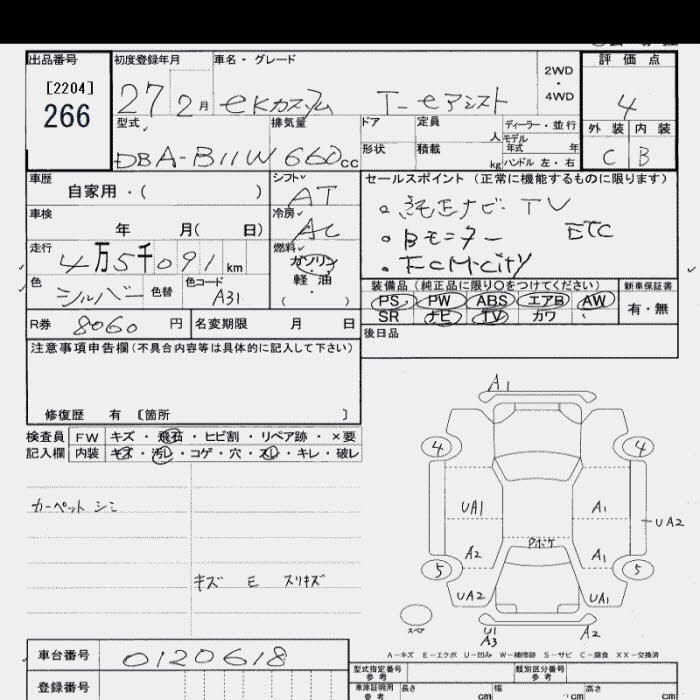 出品番号 初度登録年月 車名・グレード 評価点
[2204]
266
27 2月 eKカスタム T-eアシスト
2WD
・
4WD
4
型式 排気量 ドア 定員 人 ディーラー・並行 外装 内装
モデル年式 年
DBA-B11W 660cc 形状 積載 kg ハンドル 左・右 C B
車歴 シフト セールスポイント (正常に機能するものに限ります)
自家用・( ) AT
。純正ナビ・TV
車検 冷房
年 月( 日) AC
。Bモニター ETC
走行 燃料
4万5千091km ガソリン
・FCM-city
色 色替 色コード 軽油
シルバー A31 ( ・ )
装備品 (純正品に限り○をつけてください) 新車保証書
PS PW ABS エアB AW 有・無
SR ナビ TV カワ
R券 8060円 名変期限 月 日
後日品
注意事項申告欄(不具合内容等は具体的に記入して下さい)
修復歴 有 [箇所 ]
検査員 FW キズ・飛石・ヒビ割・リペア跡・×要
記入欄 内装 キズ・汚レ・コゲ・穴・スレ・キレ・破レ
カーペット シミ
キズ E スリキズ
A1
4 4
UA1 A1
UA2
Pボケ
A2 A1
5 5
UA2 UA1
スペア
U1
A3
A2
A-キズ E-エクボ U-凹み W-補修跡 S-サビ C-腐食 XX-交換済
車台番号 0120618
型式指定番号 類別区分番号
参考 参考
登録番号
車庫証明用 長さ 幅 高さ
参考 cm cm cm